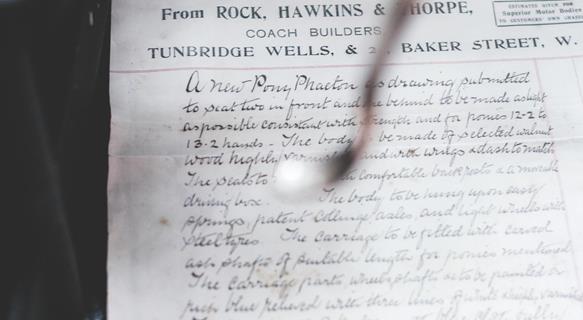 From ROCK, HAWKINS & THORPE,
COACH BUILDERS
TUNBRIDGE WELLS, & BAKER STREET, W.
ESTIMATES GIVEN FOR
Superior Motor Bodies
TO CUSTOMERS' OWN
A new Pony Phaeton as drawing submitted
to seat two in front and behind to be made as light
as possible consistant with strength and for ponies 12-2 to
13-2 hands - The body be made of selected walnut
wood highly and with wings & dash to match
The seats to comfortable backrests & a movable
driving box. The body to be hung upon easy
springs, patent Collinge axles, and light wheels with
steel tyres. The carriage to be fitted with curved
ash shafts of suitable length for ponies mentioned
The carriage parts, wheels shafts &c to be painted a
rich blue relieved with three lines of white & highly